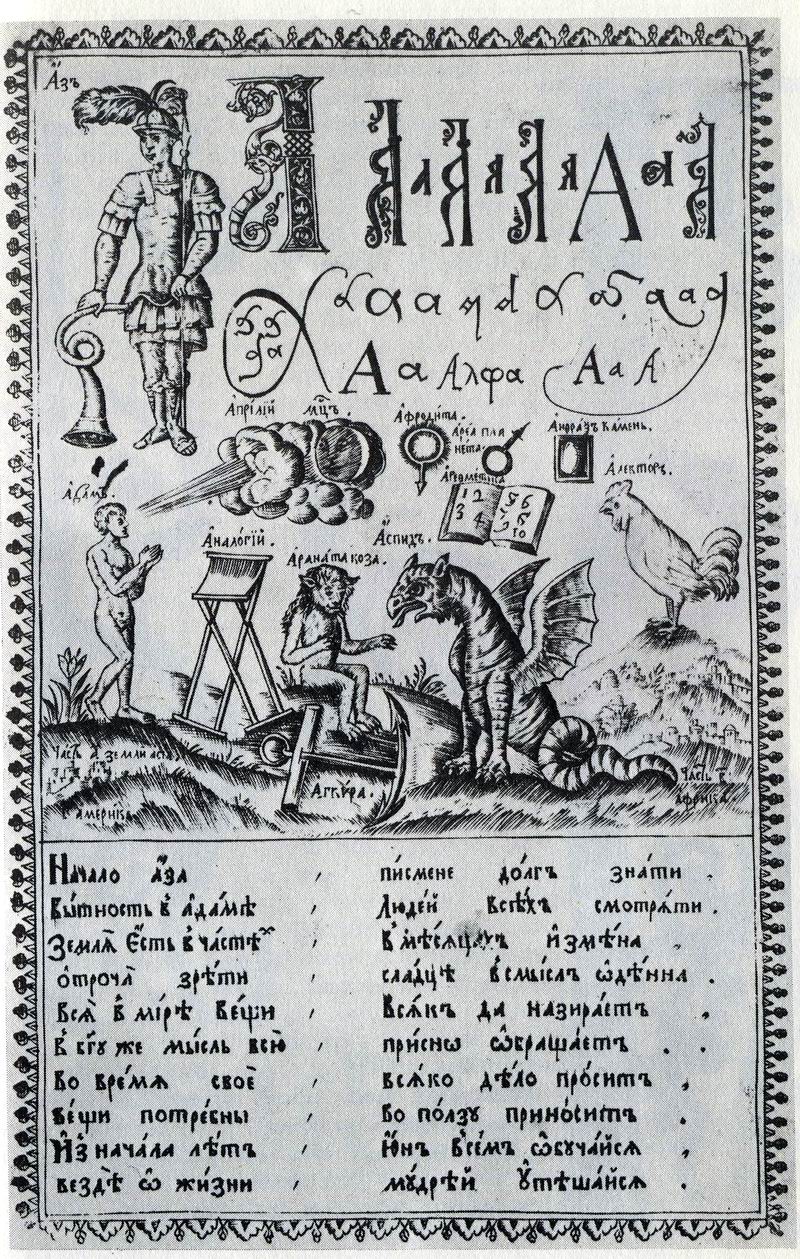 А҆́зъ
А
А а А я А я А а А
а а а а а а а ѿ а а а
а а а а
А а Алфа А а А
А҆прі́лїй мц҃ъ.
А҆фродита.
А҆реа пла
нета.
А҆ндраѯъ камень.
А҆лекторъ.
А҆да́мъ.
А҆реѳме́тїка
1 2 5 6
3 4 7 8
9 10
А҆нало́гїй.
А҆́спидъ.
А҆рана́та коза.
Часть а҃ земли асїа
америка
А҆гкѵ́ра.
Часть г҃
африка.
Нача́ло а҆́за , пи́смене до́лгъ зна́ти .
Бы́тность в̾ а҆да́мѣ , Людє́й всѣ́хъ смотрѧ́ти .
Землѧ̀ є҆́сть в̾ ча́стѣхъ , В̾ мѣ́сѧцахъ и҆змѣ́на ,
о҆троча̀ зрѣ́ти , сла́дцѣ в̾ смы́слъ ѡ҆дѣ́нна .
Всѧ̑ в̾ мі́рѣ ве́щи , Всѧ́къ да назира́етъ ,
В̾ бг҃у же мы́сль всю̀ , при́снѡ ѡ҆браща́етъ .
Во вре́мѧ своѐ , всѧ́ко дѣ́ло про́ситъ ,
ве́щи потрє́бны , во по́лзу прино́ситъ .
И҆з̾ нача́ла лѣ́тъ , Ю҆́нъ всѣ́мъ ѡ҆буча́йсѧ ,
вездѣ̀ ѡ҆ жи́зни , му́дрѣй ᲂу҆тѣша́йсѧ .